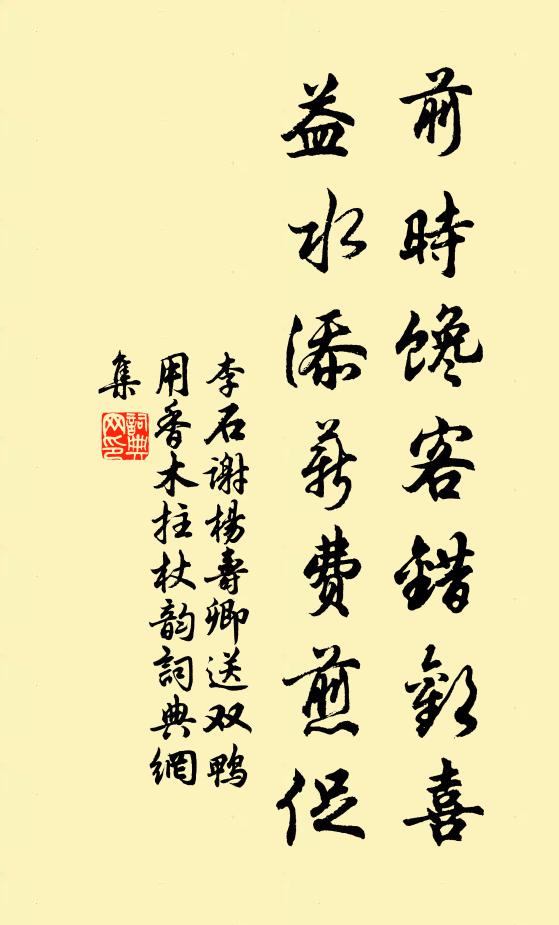 前時馋客錯歡喜
益水添薪費煎促
李石谢楊壽卿送双鸭
用香木拄杖韵詞典網
集
詞典
网印